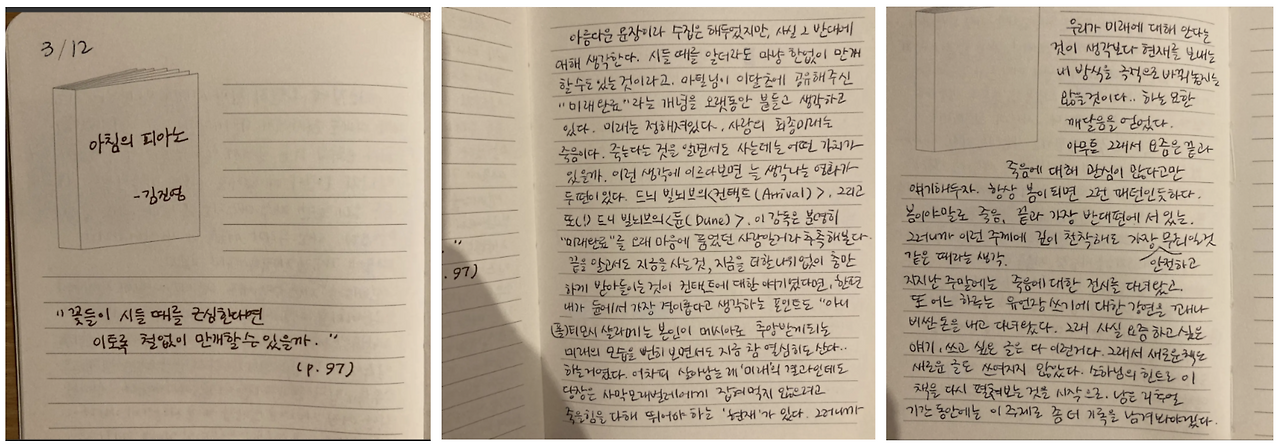 3/12
아침의 피아노
-김진영
"꽃들이 시들 때를 근심한다면
이토록 철없이 만개할 수 있을까."
(p.97)
아름다운 문장이라 수집은 해두었지만, 사실 그 반대에
대해 생각한다. 시들 때를 알더라도 마냥 한없이 만개
할 수도 있는 것이라고. 마틸님이 이달초에 공유해주신
"미래완료"라는 개념을 오랫동안 붙들고 생각하고
있다. 미래는 정해져있다. 사랑의 최종미래는
죽음이다. 죽는다는 것을 알면서도 사는데는 어떤 가치가
있을까. 이런 생각에 이르다보면 늘 생각나는 영화가
두편이 있다. 드니 빌뇌브의 <컨택트(Arrival)>, 그리고
또(!) 드니 빌뇌브의 <듄(Dune)>. 이 감독은 분명히
"미래완료"를 오래 마음에 품었던 사람일거라 추측해본다.
끝을 알고서도 지금을 사는 것, 지금을 더할나위없이 충만
하게 받아들이는 것이 컨택트에 대한 얘기였다면, 한편
내가 듄에서 가장 경이롭다고 생각하는 포인트도 "아니
(폴)티모시 샬라메는 본인이 메시아로 추앙받게되는
미래의 모습을 뻔히 보면서도 지금 참 열심히도 산다..
하는거였다. 어차피 살아남는 게 '미래'의 결과인데도
당장은 사막모래벌레에게 잡혀먹지 않으려고
죽을힘을 다해 뛰어야 하는 '현재'가 있다. 그러니까
"
.97)
우리가 미래에 대해 안다는
것이 생각보다 현재를 보내는
내 방식을 극적으로 바꿔놓지는
않을 것이다.. 하는 묘한
깨달음을 얻었다.
아무튼 그래서 요즘은 끝과
죽음에 대해 관심이 많다고만
얘기해두자. 항상 봄이 되면 그런 패턴인듯하다.
봄이야말로 죽음, 끝과 가장 반대편에 서 있는.
그러니까 이런 주제에 깊이 천착해도 가장 무리없을것
같은 때라는 생각. 안전하고
지지난 주말에는 죽음에 대한 전시를 다녀왔고,
또 어느 하루는 유언장 쓰기에 대한 강연을 꽤나
비싼 돈을 내고 다녀왔다. 그래 사실 요즘 하고 싶은
얘기, 쓰고 싶은 글은 다 이런거다. 그래서 새로운 책도
새로운 글도 쓰여지지 않았다. 소하님의 힌트로 이
책을 다시 펼쳐보는 것을 시작으로, 남은
기간 동안에는 이 주제로 좀 더 기록을 남겨봐야겠다.